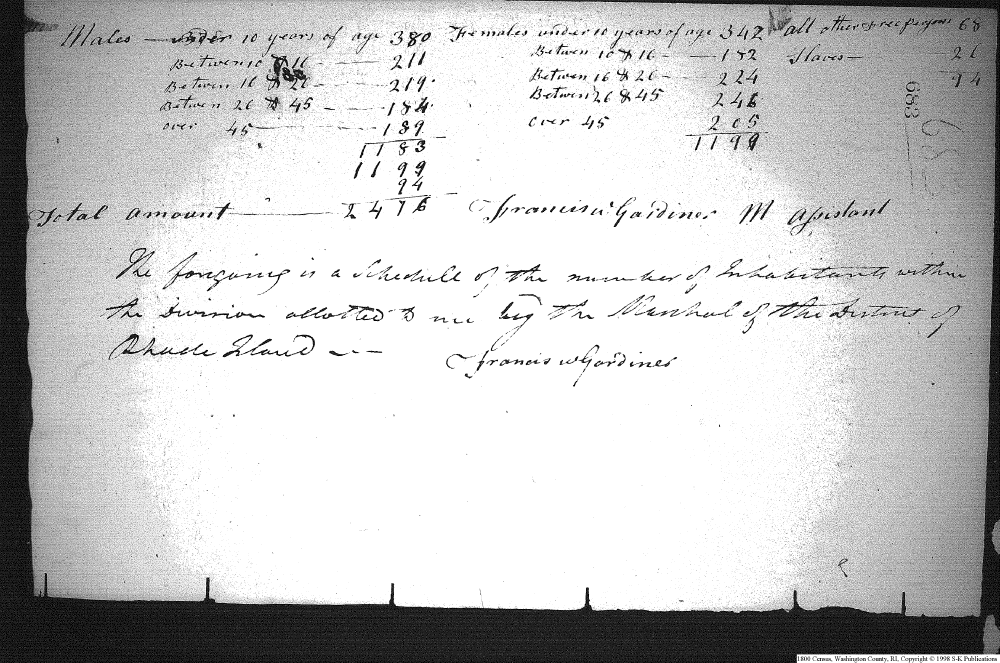 Males — under 10 years of age 380 Females under 10 years of age 342 all other free persons 68
Between 10 & 16 — 211 Between 10 & 16 — 182 Slaves — 26
Between 16 & 26 — 219 Between 16 & 26 — 224 94
Between 26 & 45 — 184 Between 26 & 45 246
over 45 — 189 over 45 205
1183 1199
1199
94
Total amount — 2476 Francis W Gardiner M Assistant
683
The foregoing is a Schedule of the number of Inhabitants within
the Division allotted to me by the Marshal of the District of
Rhode Island — Francis W Gardiner
1800 Census, Washington County, RI, Copyright © 1998 S-K Publications